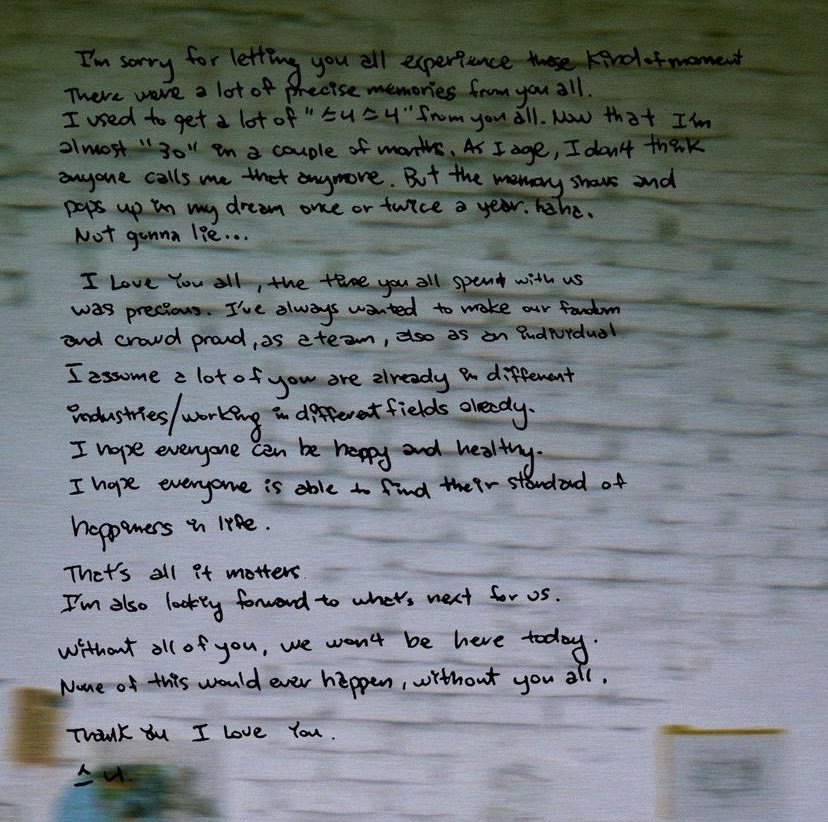 I'm sorry for letting you all experience those kind of moment
There were a lot of precise memories from you all.
I used to get a lot of "스니스니" from you all. Now that I'm
almost "30" in a couple of months. As I age, I don't think
anyone calls me that anymore. But the memory shows and
pops up in my dream once or twice a year. haha.
Not gonna lie...
I Love You all, the time you all spent with us
was precious. I've always wanted to make our fandom
and crowd proud, as a team, also as an individual
I assume a lot of you are already in different
industries/working in different fields already.
I hope everyone can be happy and healthy.
I hope everyone is able to find their standard of
happiness in life.
That's all it matters
I'm also looking forward to what's next for us.
Without all of you, we won't be here today.
None of this would ever happen, without you all.
Thank You I Love You.
스니.